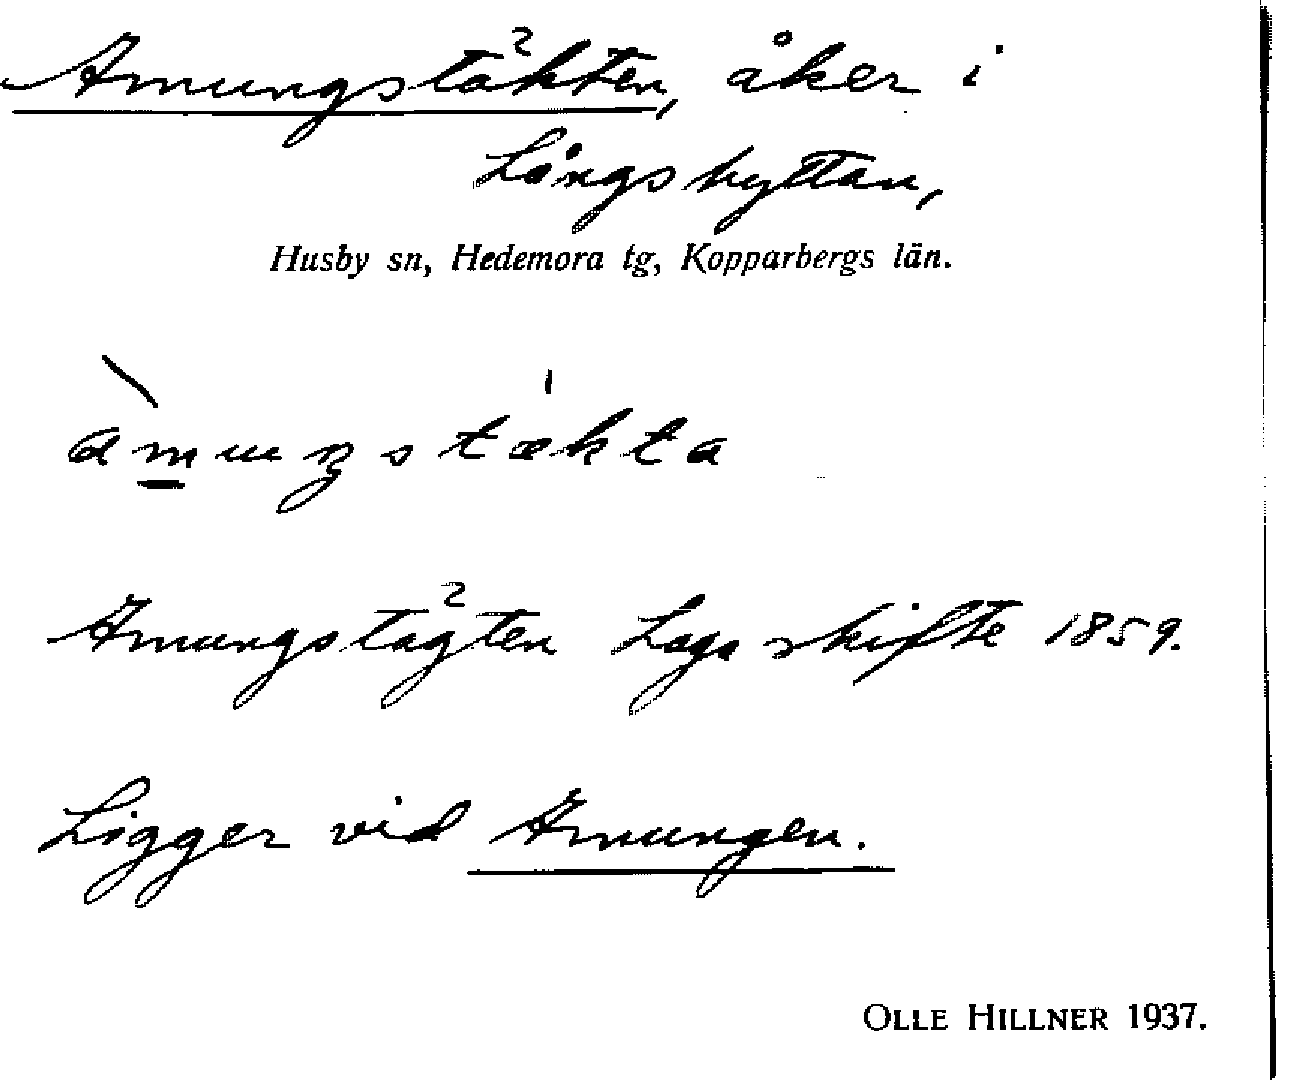 Amungstäkten, åker i
Långshyttan,
Husby sn, Hedemora tg, Kopparbergs län.
àm̲uŋstækta
Amungstägten Laga skifte 1859.
Ligger vid Amungen.
OLLE HILLNER 1937.